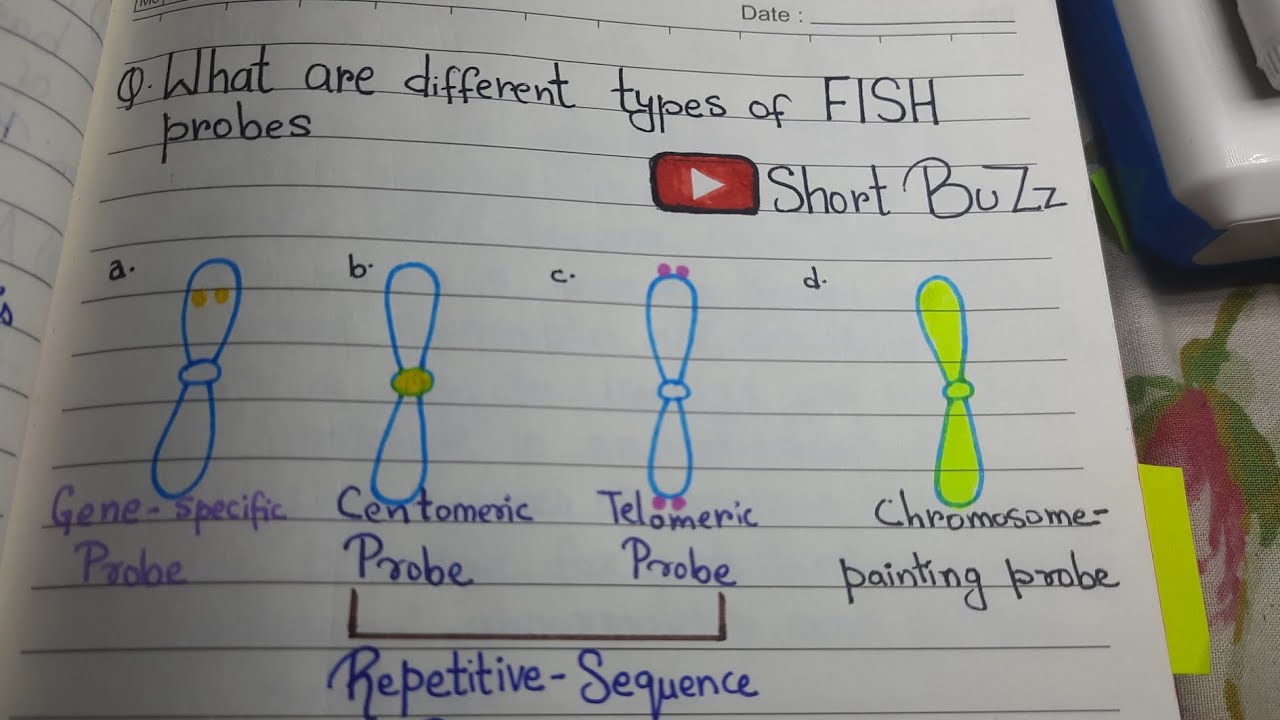 Date :
Q. What are different types of FISH
probes
Short BuZz
a. b. c. d.
Gene-specific Centomeric Telomeric Chromosome-
Probe Probe Probe painting probe
Repetitive-Sequence